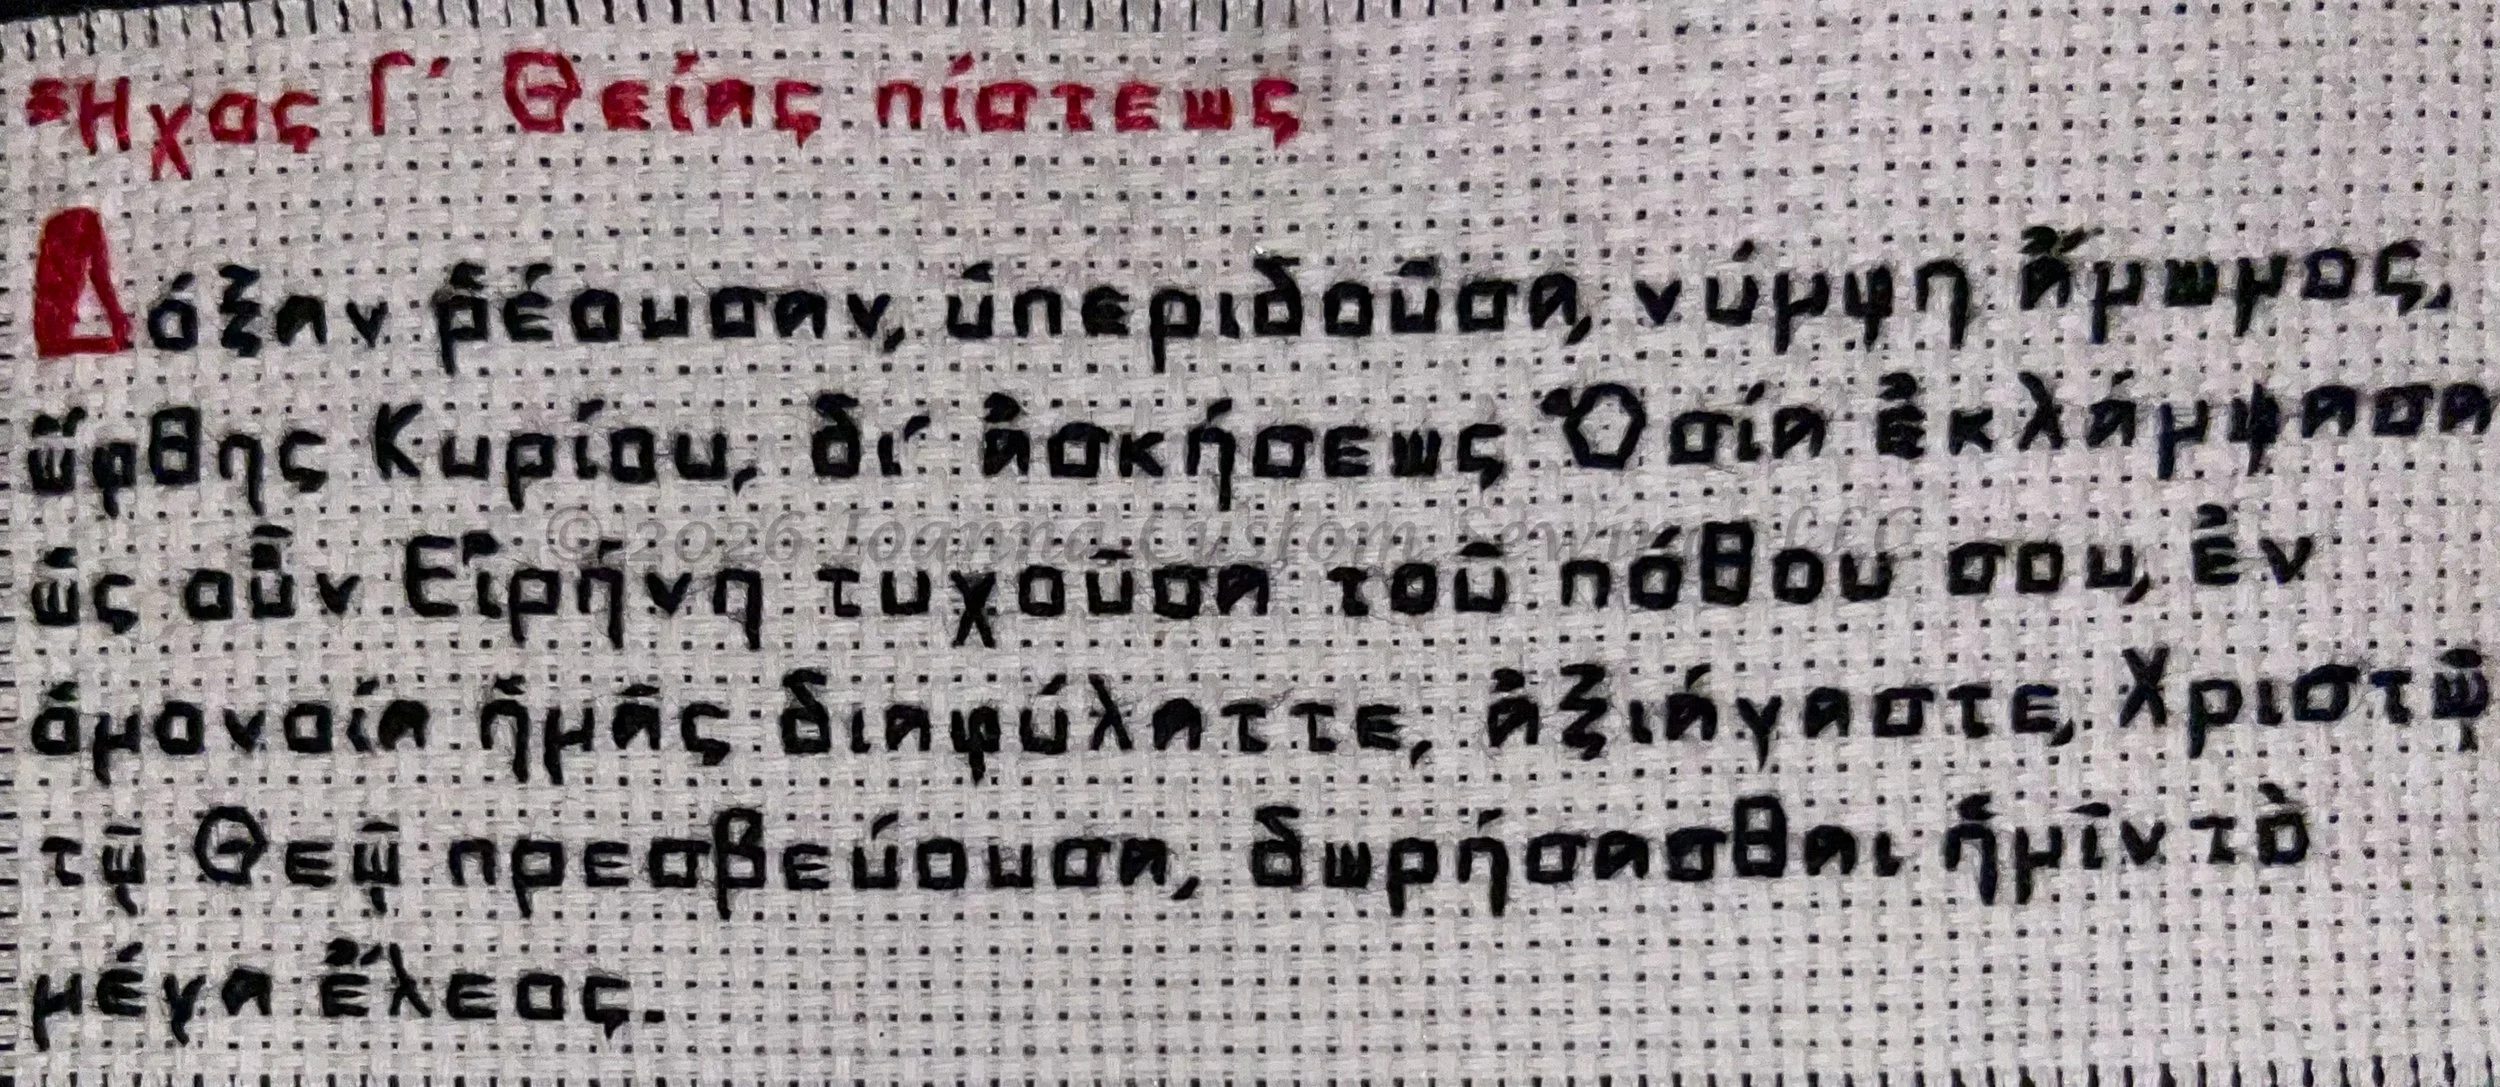 Ἦχος Γ΄ Θείας πίστεως
Δόξαν ῥέουσαν, ὑπεριδοῦσα, νύμφη ἄμωμος,
ὤφθης Κυρίου, δι' ἀσκήσεως Ὁσία ἐκλάμψασα
ὡς οὖν Εἰρήνη τυχοῦσα τοῦ πόθου σου, ἐν
ὁμονοίᾳ ἡμᾶς διαφύλαττε, ἀξιάγαστε, Χριστῷ
τῷ Θεῷ πρεσβεύουσα, δωρήσασθαι ἡμῖν τὸ
μέγα ἔλεος.
© 2026 Joanna Custom Sewing LLC